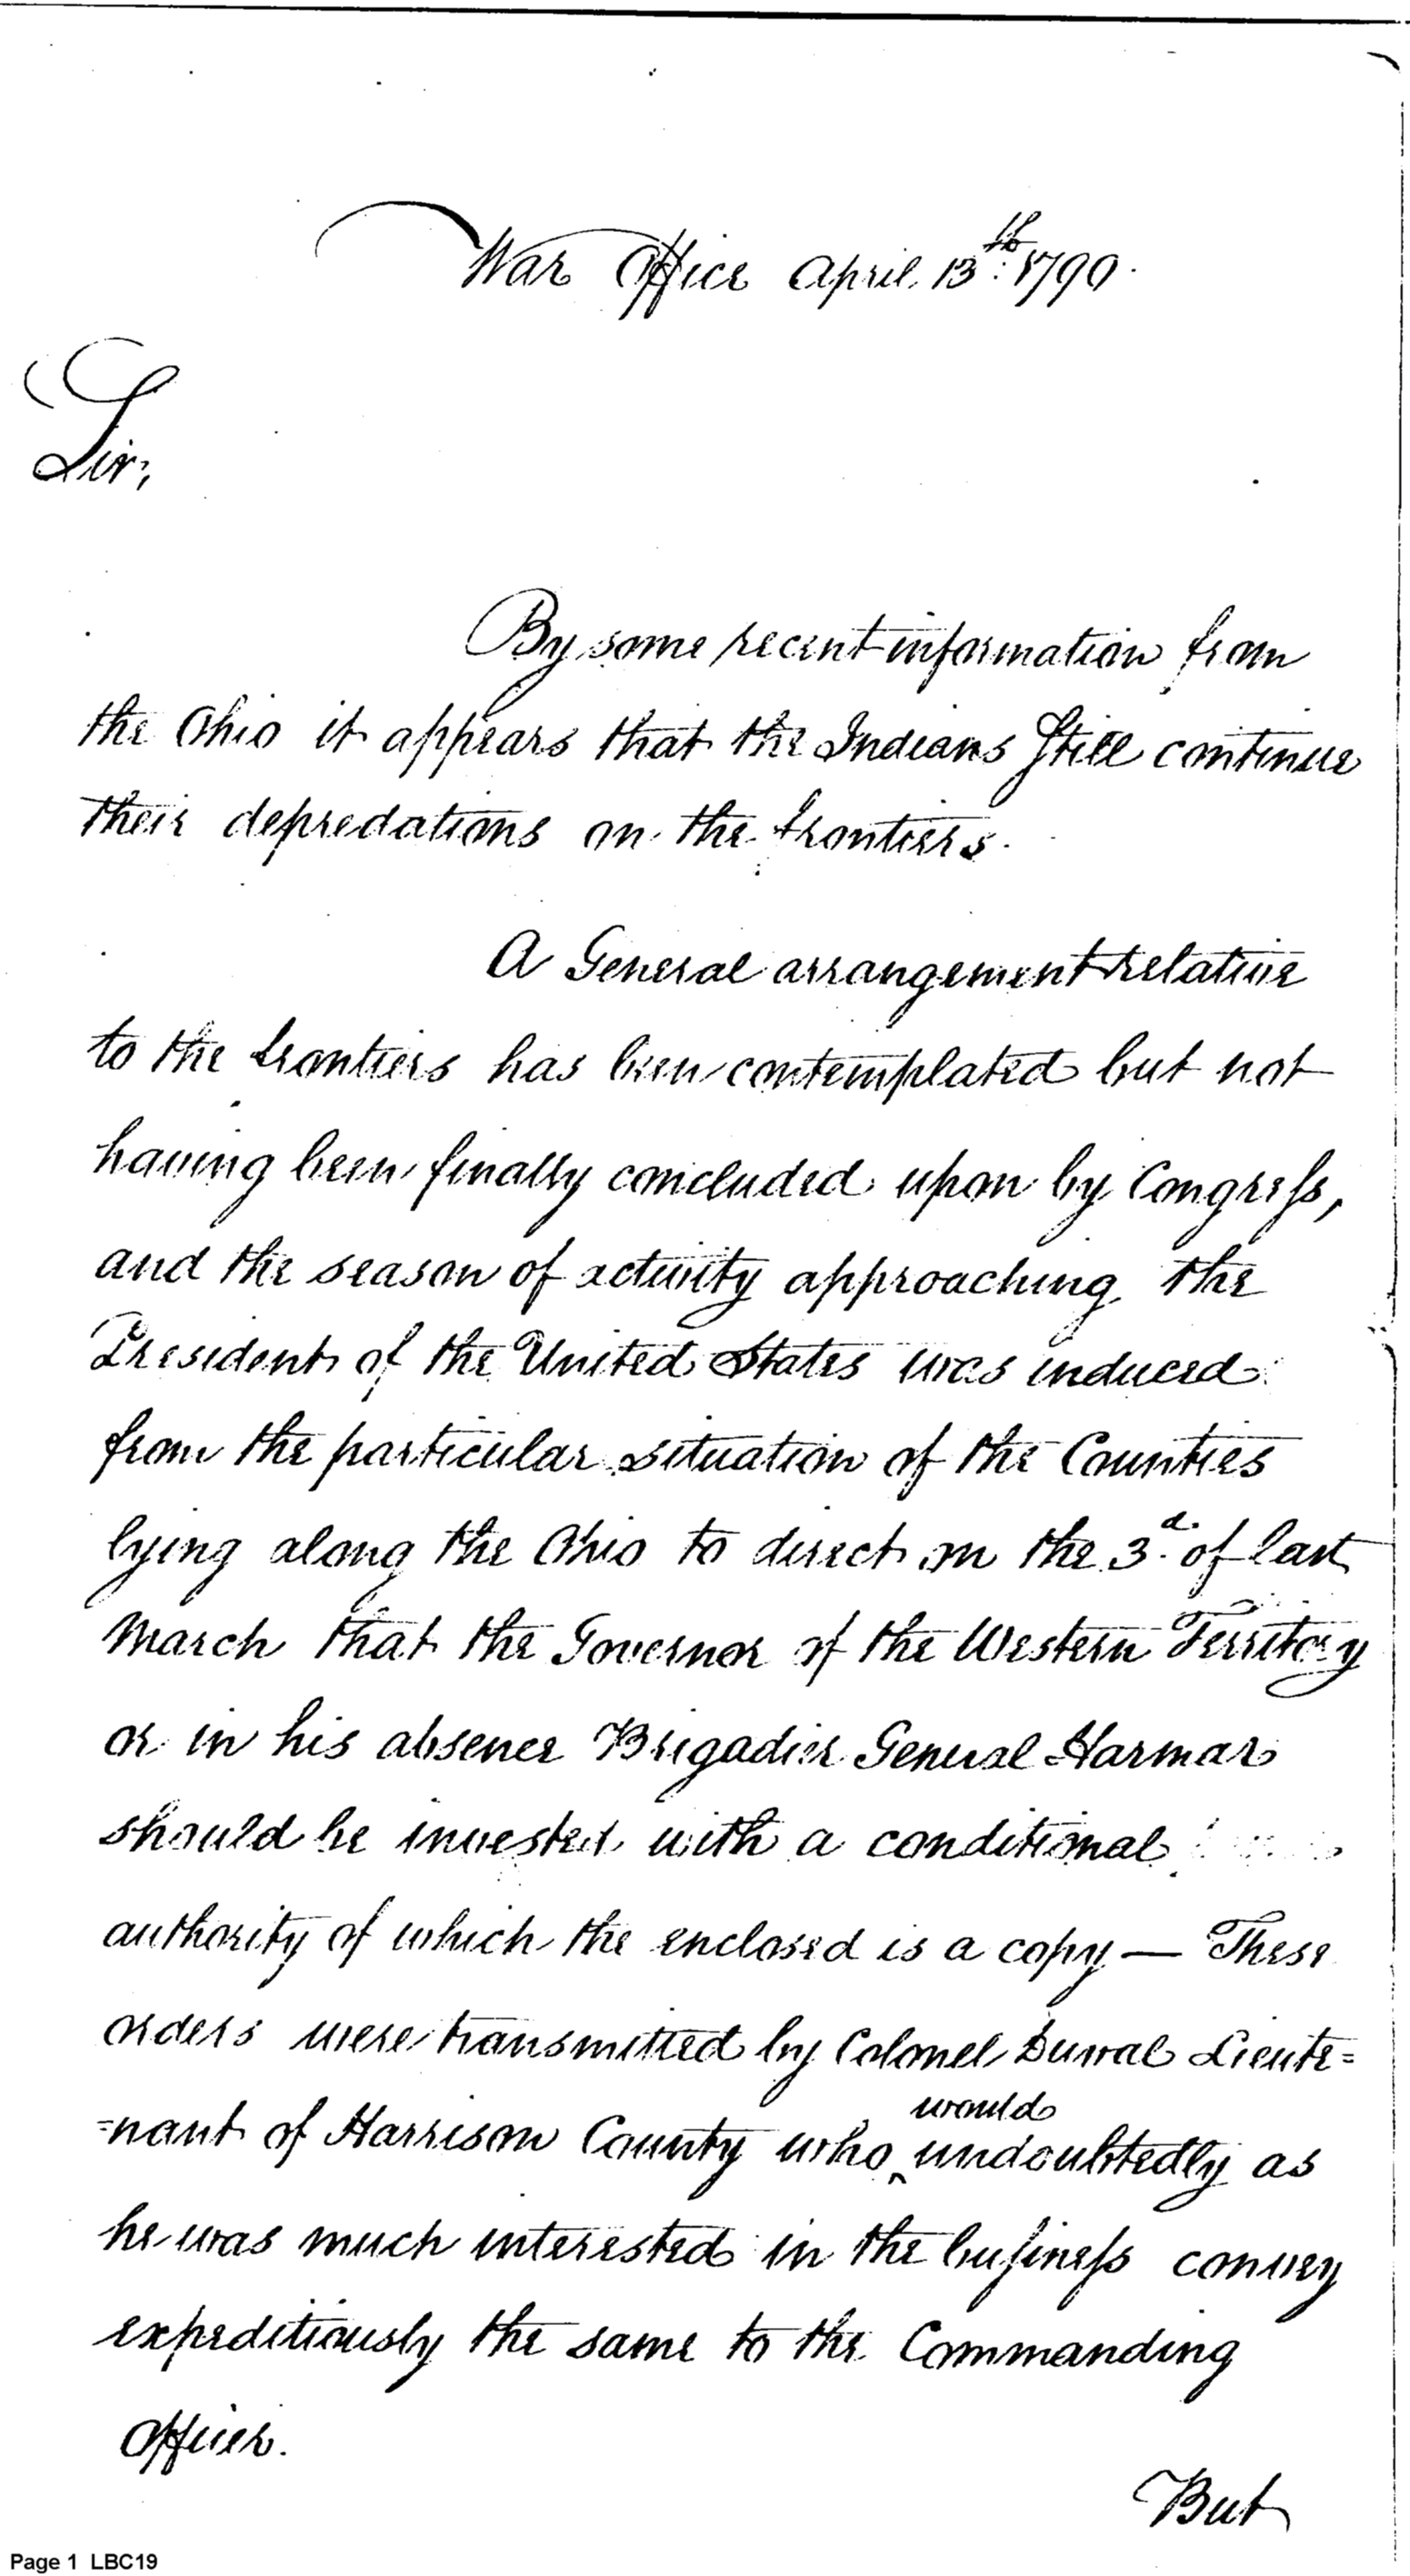 War Office April 13th: 1790.
Sir,
By some recent information from
the Ohio it appears that the Indians Still continue
their depredations on the frontiers.
A General arrangement relative
to the frontiers has been contemplated but not
having been finally concluded upon by Congreſs,
and the season of activity approaching, the
President of the United States was induced
from the particular situation of the Counties
lying along the Ohio to direct on the 3d. of last
March that the Governor of the Western Territory
or in his absence Brigadier General Harmar
should be invested with a conditional
authority of which the enclosed is a copy — These
orders were transmitted by Colonel Duval Lieute=
=nant of Harrison County who ‸ would undoubtedly as
he was much interested in the buſineſs convey
expeditiously the same to the Commanding
Officer.
But
Page 1 LBC19